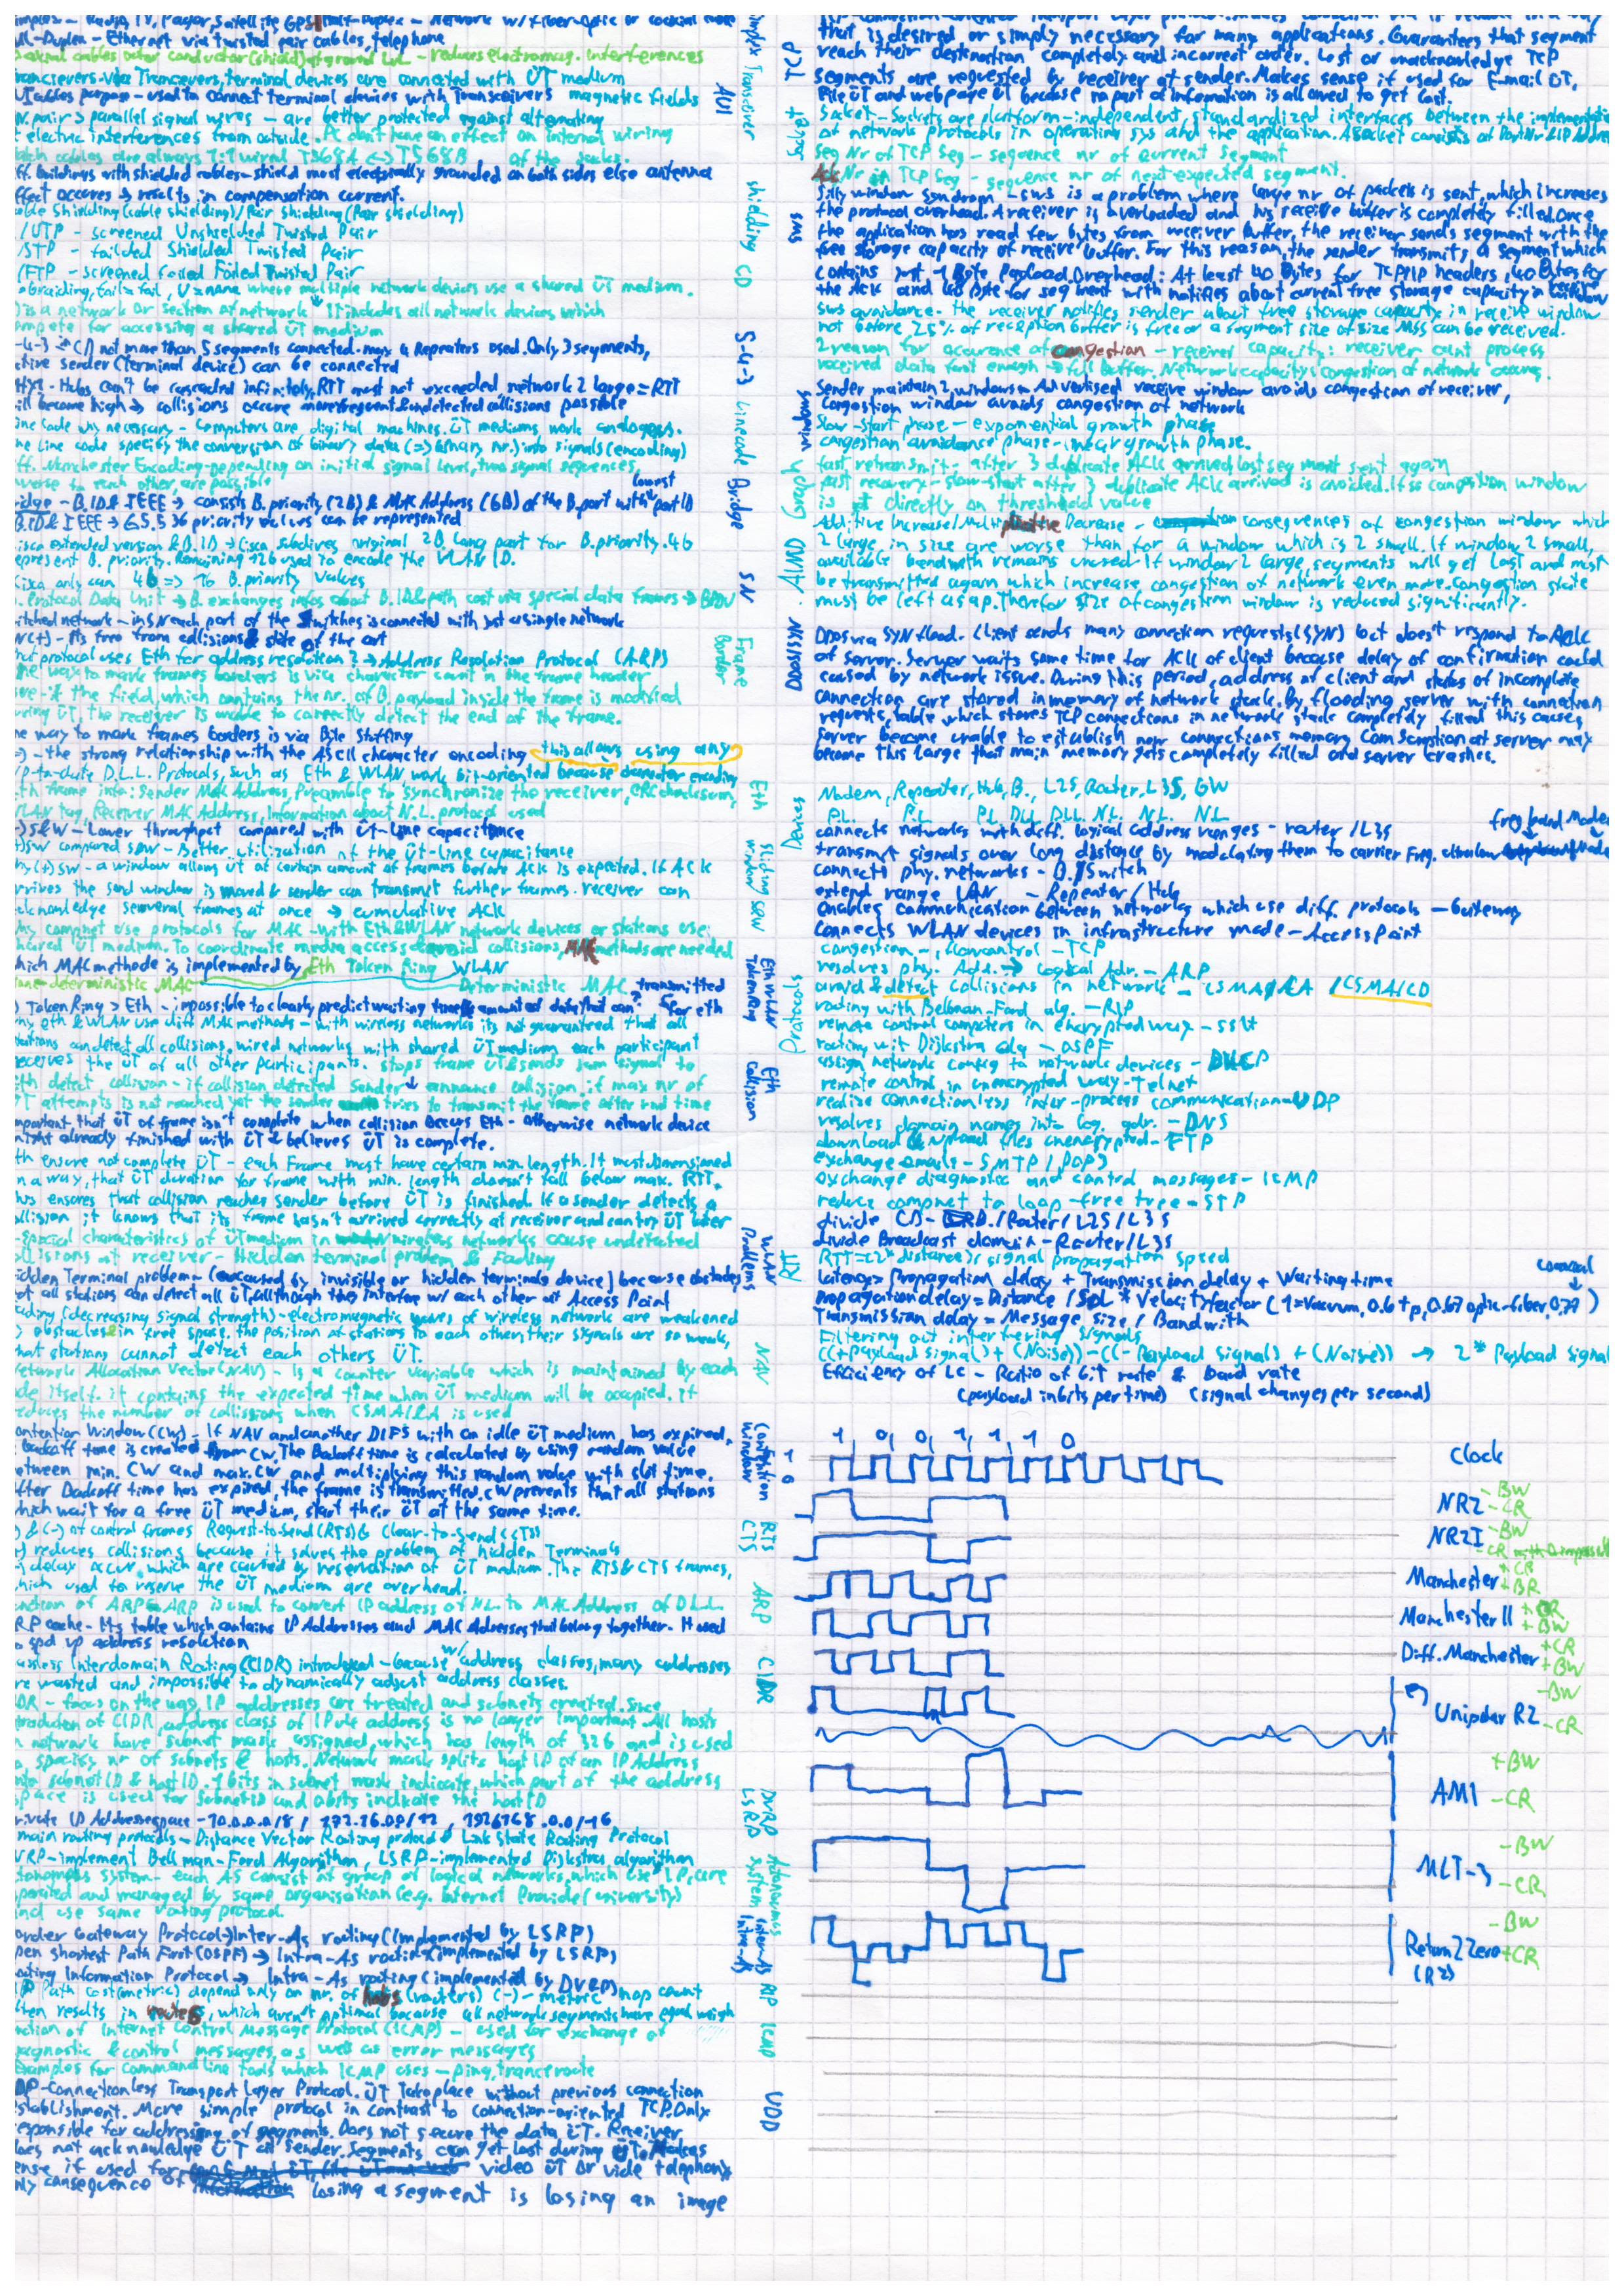 ull-Duplex - Ethernet via twisted pair cables, telephone
oaxial cables outer conductor (shield) at ground LvL - reduces electromag. interferences
rancievers - via Trancevers, terminal devices are connected with ÜT medium
UI cables purpose - used to connect terminal devices with Transceivers magnetic fields
w. pair > parallel signal wires - are better protected against alternating
t electric interferences from outside. Pc don't have an effect on internal wiring
atch cables are always 1:1 wired T568A <=> T568B of the Jacks.
ff. Buildings with shielded cables - shield most electrically grounded on both sides else antenna
ffect occures → results in compensation current.
able Shielding (cable shielding) / Pair Shielding (Pair shielding)
/UTP - screened Unshielded Twisted Pair
/STP - foiled Shielded Twisted Pair
/FTP - screened foiled Foiled Twisted Pair
=Braiding, foil=foil, U=none where multiple network devices use a shared ÜT medium.
) is a network or section of network. It includes all network devices which
ompete for accessing a shared ÜT medium
-4-3 in CD not more than 5 segments connected. max 4 Repeaters used. Only 3 segments,
ctive sender (terminal device) can be connected
Hubs can't be cascaded infinitely, RTT must not exceeded network 2 large = RTT
ill become high → collisions occure more frequent & undetected collisions possible
ine code why necessary - Computers are digital machines. ÜT mediums work analogous.
he line code specify the conversion of binary data (=> binary nr.) into signals (encoding)
ff. Manchester Encoding - Depending on initial signal level, two signal sequences,
verse to each other, are possible
ridge - B.ID & IEEE → consists B. priority (2B) & MAC Address (6B) of the B. port with lowest port ID
B.ID & IEEE → 65.536 priority values can be represented
isco extended version & B.ID → Cisco subdives original 2B long part for B. priority. 4b
epresent B. priority. Remaining 12b used to encode the VLAN ID.
Cisco only can 4b => 16 B. priority values
. Protocol Data Unit → B. exchanges infos about B. IDs & path cost via special data frames → BPDU
itched network - in SN each part of the switches is connected with just a single network
N(+) - its free from collisions & state of the art
hat protocol uses Eth for address resolution? → Address Resolution Protocol (ARP)
ne way to mark frames borders is via character count in the frame header
ve - if the field, which contains the nr. of B payload inside the frame is modified
uring ÜT, the receiver is unable to correctly detect the end of the frame.
ne way to mark frames borders is via Byte Stuffing
-) - the strong relationship with the ASCII character encoding this allows using any
p-to-date D.L.L. Protocols, such as Eth & WLAN work bit-oriented because character encoding
th frame info: Sender MAC Address, Preamble to synchronize the receiver, CRC checksum,
LAN tag, Receiver MAC Address, Information about N.L. protocol used
-) S&W - Lower throughput compared with ÜT-line capacitance
+) SW compared S&W - Better utilization of the ÜT-line capacitance
hy (+) SW - a window allows ÜT of certain amount of frames before ACK is expected. If ACK
rrives the send window is moved & sender can transmit further frames. receiver can
cknowledge serveral frames at once → cumulative ACK
hy compnet use protocols for MAC - with Eth & WLAN network devices or stations use
hared ÜT medium. To coordinate media access & avoid collisions, MAC methods are needed
hich MAC methode is implemented by Eth Token Ring WLAN
one deterministic MAC Deterministic MAC transmitted
) Token Ring > Eth - impossible to clearly predict waiting time & amounted data that can? for eth
hy eth & WLAN use diff MAC methods - with wireless networks its not guaranteed that all
tations can detect all collisions, wired networks with shared ÜT medium each participant
receives the ÜT of all other participants. stops frame ÜT & sends jam signal to
th detect collission - if collision detected Sender announce collision. if max nr of
T attempts is not reached yet the sender tries to transmit the frame after rnd time
mportant that ÜT of frame isn't complete when collision occurs Eth - otherwise network device
might already finished with ÜT & believes ÜT is complete.
th ensure not complete ÜT - each Frame must have certain min length. It must dimensioned
n a way, that ÜT duration for frame with min. length doesn't fall below max. RTT.
his ensures that collision reaches sender before ÜT is finished. If a sender detects a
ollision it knows that its frame hasn't arrived correctly at receiver and can try ÜT later
-special characteristics of ÜT medium in wireless networks cause undetected
ollisions at receiver - Hidden terminal problem & Fading
idden Terminal problem - (caused by invisible or hidden terminals device) because obstacles,
ot all stations can detect all ÜT, allthough they interfere w/ each other at Access Point
ading (decreasing signal strength) - electromagnetic waves of wireless network are weakened
> obstacles in free space. the position of stations to each other their signals are so weak,
hat stations cannot detect each others ÜT.
etwork Allocation Vector (NAV) - Is a counter variable which is maintained by each
de itself. it contains the expected time when ÜT medium will be occupied. it
educes the number of collisions when CSMA/CA is used
ontention Window (CW) - If NAV and another DIFS with an idle ÜT medium has expired,
backoff time is created from CW. The Backoff time is calculated by using random value
etween min. CW and max. CW and multiplying this random value with slot time.
fter Backoff time has expired, the frame is transmitted. CW prevents that all stations
hich wait for a free ÜT medium, start their ÜT at the same time.
) & (-) of control frames Request-to-Send (RTS) & Clear-to-Send (CTS)
+) reduces collisions because it solves the problem of hidden Terminals
-) delay occur, which are caused by reservation of ÜT medium. The RTS & CTS frames,
hich used to reserve the ÜT medium are overhead.
unction of ARP - ARP is used to convert IP address of N.L. to MAC Address of D.L.L.
RP cache - its table which contains IP Addresses and MAC Addresses that belong together. It used
o spd up address resolution
assless Interdomain Routing (CIDR) introduced - because w/ address classes, many addresses
re wasted and impossible to dynamically adjust address classes.
IDR - focus on the way IP addresses are treated and subnets created. Since
troduction of CIDR, address class of IPv4 address is no longer important. All hosts
n network have subnet mask assigned, which has length of 32b and is used
o specify nr of subnets & hosts. Network mask splits host ID of an IP Address
into subnet ID & host ID. 1 bits in subnet mask indicate, which part of the address
space is used for subnet ID and 0 bits indicate the host ID
rivate IP Addresse space - 10.0.0.0/8 / 172.16.0.0/12, 192.168.0.0/16
main routing protocols - Distance Vector Routing protocol & Link State Routing Protocol
VRP - implement Bellman-Ford Algorithm, LSRP - implemented Dijkstras algorithm
tonomous system - each AS consist of group of logical networks, which use IP, are
perated and managed by same organisation (e.g. Internet Provider / university)
and use same routing protocol.
order Gateway Protocol → Inter-As routing (Implemented by LSRP)
pen shortest Path First (OSPF) → Intra-As routing (implemented by LSRP)
outing Information Protocol → Intra-As routing (implemented by DVRP)
IP Path cost (metric) depend only on nr. of hops (routers) (-) - metric hop count
ften results in routes, which aren't optimal because all network segments have equal weigh
nction of Internet Control Message Protocol (ICMP) - used for exchange of
iagnostic & control messages, as well as error messages
Examples for Command line Tools which ICMP uses - Ping, traceroute
DP - Connectionless Transport Layer Protocol. ÜT Take place without previous connection
stablishment. More simple protocol in contrast to connection-oriented TCP. Only
esponsible for addressing of segments. Does not secure the data ÜT. Receiver
oes not acknowledge ÜT at sender. Segments can get lost during ÜT. Makes
ense if used for video ÜT or vide telephony
nly consequence of losing a segment is losing an image
Simplex Transceiver
AUI
shielding
CD
5-4-3
Linecode
Bridge
SN
Frame Border
Eth
sliding window S&W
Eth WLAN TokenRing
Eth Collision
WLAN Problems
NAV
Contention Window
RTS CTS
ARP
CIDR
DVRP LSRP
Autonomous System
Inter-AS Intra-AS
RIP
ICMP
UDP
TCP
that is desired or simply necessary for many applications. Guarantees that segment
reach their destination completely and incorrect order. Lost or unacknowledge TCP
segments are requested by receiver at sender. Makes sense if used for E-mail ÜT,
File ÜT and webpage ÜT because no part of infomation is allowed to get lost.
Socket
Socket - Sockets are platform-independent, standardized interfaces between the implementatio
of network protocols in operating sys and the application. A Socket consists of PortNr & IP Addres
Seq Nr of TCP Seg - sequence nr of current segment
Ack Nr in TCP Seg - sequence nr of next expected segment.
SWS
Silly window syndrom - sws is a problem where large nr of packets is sent, which increases
the protocol overhead. A receiver is overloaded and his receive buffer is completely filled. once
the application has read few bytes from receiver buffer, the receiver sends segment with the
free storage capacity of receive buffer. For this reason, the sender transmits a segment which
contains just 1 Byte Payload. Overhead: At least 40 Bytes for TCP/IP headers, 40 Bytes for
the ACK and 40 Byte for segment with notifies about current free storage capacity in window
sws avoidance - the receiver notifies sender about free storage capacity in receive window
not before 25% of reception buffer is free or a segment size of size MSS can be received.
2 reason for occurence of congestion - receiver capacity: receiver cant process
received data fast enough → full buffer. Network capacity: congestion of network occurs.
windows
Sender maintain 2 windows - Advertised receive window avoids congestion of receiver,
Congestion window avoids congestion of network
Slow-Start phase - exponential growth phase
congestion avoidance phase - linear growth phase.
Graph
fast retransmit - after 3 duplicate ACK arrived lost seg most sent again
fast recovery - slow-start after 3 duplicate ACK arrived is avoided. It so congestion window
is directly on threshold value
AIMD
Additive Increase/Multiplicative Decrease - consequences of congestion window which
2 large in size are worse than for a window which is 2 small. If window 2 small,
available bandwith remains unused. If window 2 large, segments will get lost and must
be transmitted again which increase congestion of network even more. congestion state
must be left asap. Therefor size of congestion window is reduced significantly.
DDOS/SYN
DDOS via SYN flood. Client sends many connection requests (SYN) but doesn't respond to Ack
of server. Server waits some time for ACK of client because delay of confirmation could
caused by network issue. During this period, address of client and status of incomplete
connection are stored in memory of network stack. By flooding server with connection
requests, table which stores TCP connections in network stack completely filled this causes
Server become unable to establish new connections. memory Comsumtion at server may
become this large that main memory gets completely filled and server crashes.
Devices
Modem, Repeater, Hub, B., L2S, Router, L3S, GW
P.L. P.L. P.L. DLL DLL N.L. N.L. N.L
connects networks with diff. logical address ranges - router / L3S
transmit signals over long distance by modulating them to carrier Freq.
connects phy. networks - B./Switch
extend range LAN - Repeater / Hub
enables communication between networks which use diff. protocols - Gateway
Connects WLAN devices in infrastructure mode - Access Point
Protocols
congestion - flowcontrol - TCP
resolves phy. Adr. → Logical Adr. - ARP
avoid & detect Collisions in network - CSMA/CA / CSMA/CD
routing with Bellman-Ford alg. - RIP
remote control computers in encrypted way - SSH
routing wit Dijkstra alg - OSPF
assign network config to network devices - DHCP
remote control in unencrypted way - Telnet
realize connectionless inter-process communication - UDP
resolves domain names into log. adr. - DNS
download & Upload files unencrypted - FTP
exchange emails - SMTP / POP3
exchange diagnostic and control messages - ICMP
reduce compnet to loop-free tree - STP
divide CD - B. / Router / L2S / L3S
divide Broadcast domain - Router / L3S
RTT
RTT = (2* distance) / signal propagation speed
latency = Propagation delay + Transmission delay + Waiting time
coaxial
Propagation delay = Distance / SOL * Velocity factor (1 = Vacuum, 0.6 t p, 0.67 optic-fiber, 0.77)
Transmission delay = Message size / Bandwith
Filtering out interfering signals
((+Payload signal) + (Noise)) - ((- Payload signal) + (Noise)) → 2* Payload signal
Efficiency of LC - Ratio of bit rate & baud rate
(payload in bits per time) (signal changes per second)
1 0 0 1 1 1 0
1
0
Clock
NRZ -BW -CR
NRZI -BW
Manchester +CR +BR
Manchester II +CR +BW
Diff. Manchester +CR +BW
Unipolar RZ -BW -CR
AMI +BW -CR
MLT-3 -BW -CR
Return 2 Zero (RZ) -BW +CR